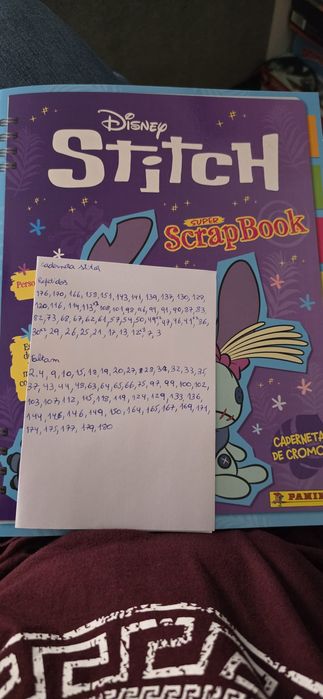 Disney
Stitch
SUPER
ScrapBook
Caderneta stitch
Repetidos
176, 170, 166, 159, 151, 143, 141, 139, 137, 130, 129,
120, 116, 114, 113, 108, 101, 98, 96, 91, 90, 87, 83,
82, 73, 68, 67, 62, 61, 57, 54, 50, 49, 47, 16, 41, 36,
30, 29, 26, 25, 21, 17, 13, 12, 7, 3
Faltam
2, 4, 9, 10, 15, 18, 19, 20, 27, 28, 32, 33, 35
37, 43, 44, 48, 63, 64, 65, 66, 75, 97, 99, 100, 102,
103, 107, 112, 115, 118, 119, 124, 129, 133, 136,
144, 146, 149, 150, 164, 165, 167, 169, 171,
174, 175, 177, 179, 180
CADERNETA
DE CROMO
PANINI